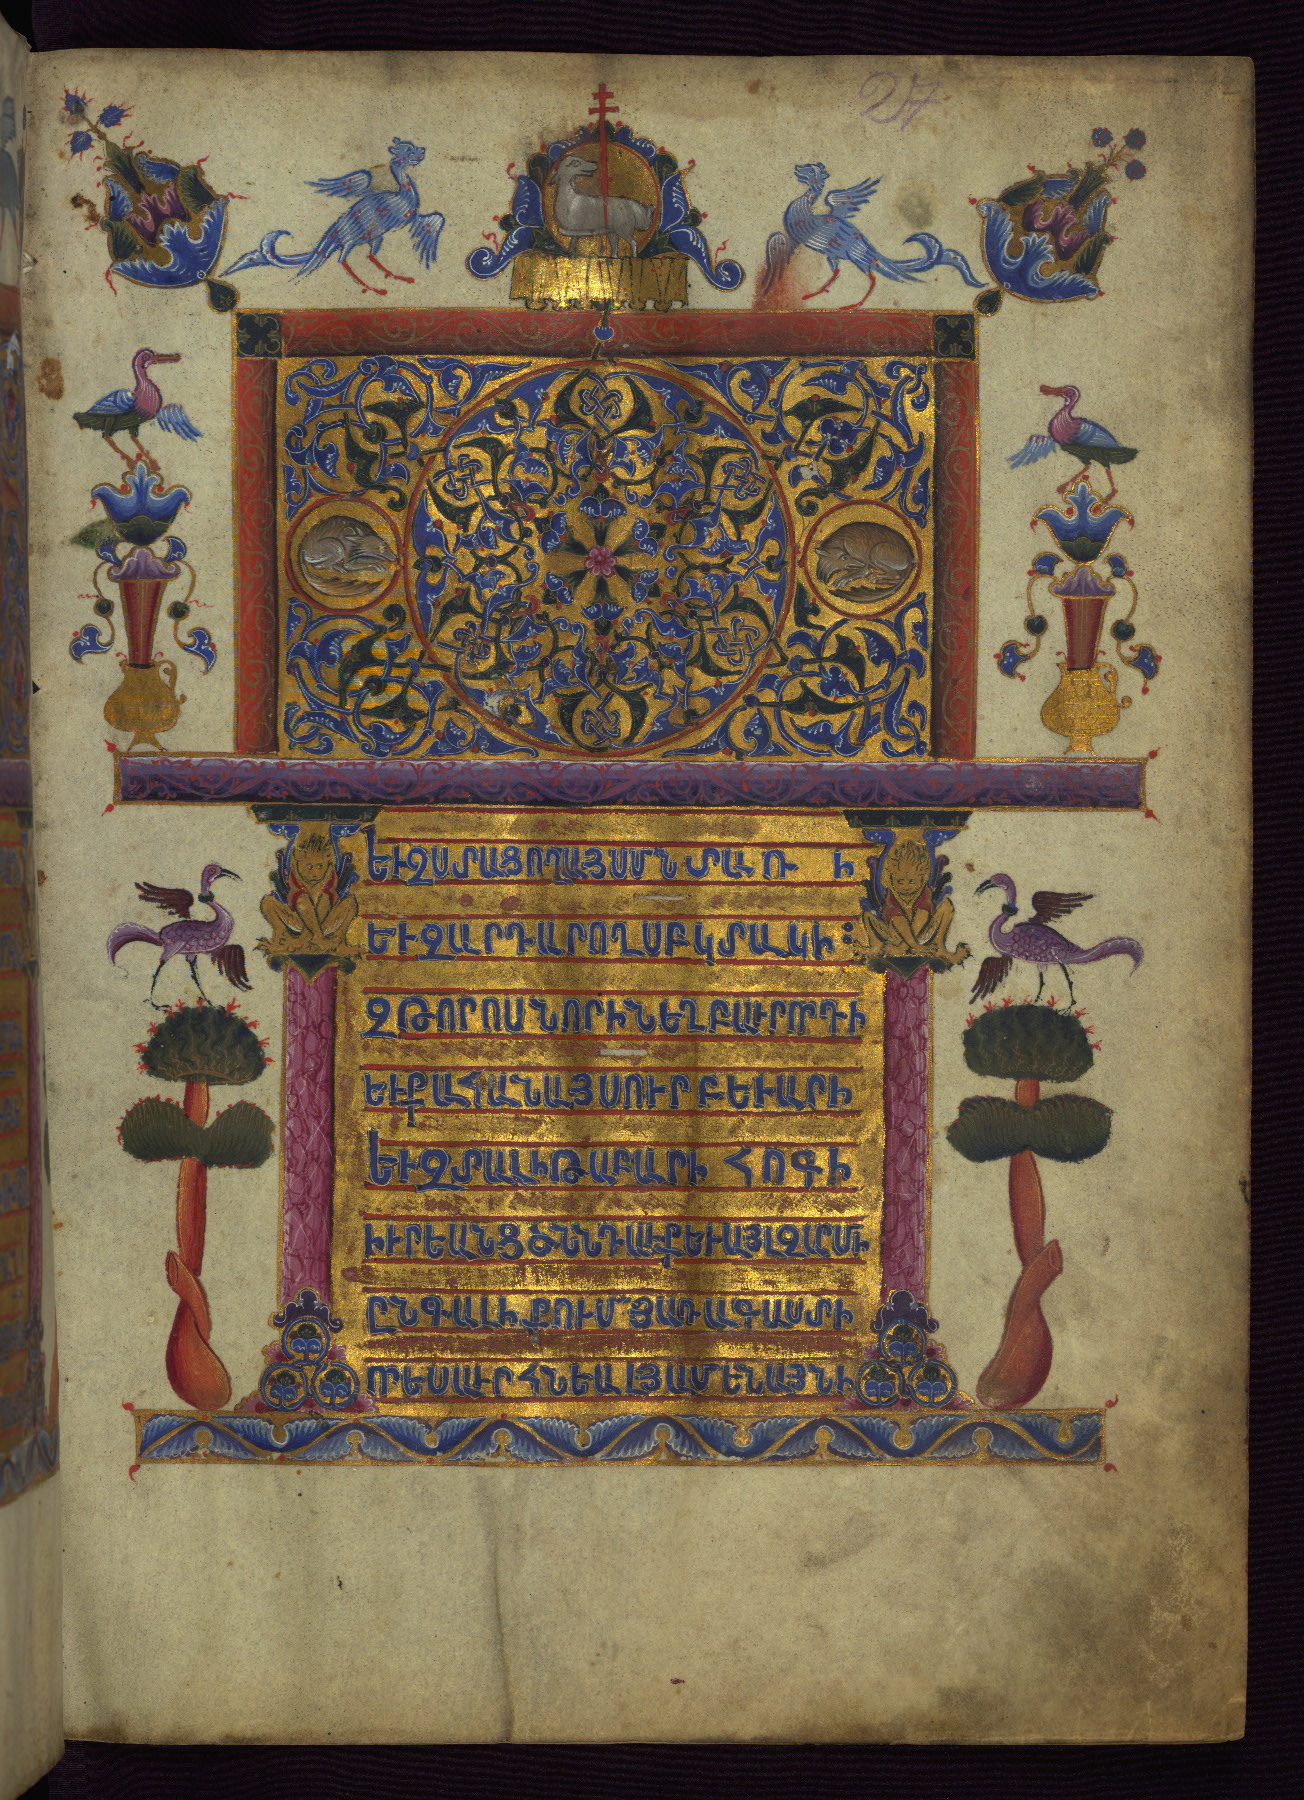 27
ԵՒԶՍՏԱՑՈՂԱՅՍՄՆՏԱՌ Ի
ԵՒԶԱՐԴԱՐՈՂՍԲԿՏԱԿԻ։
ԶԹՈՐՈՍՆՈՐԻՆԵՂԲԱՒՐՈՐԴԻ
ԵՒՔԱՀԱՆԱՅՍՈՒՐԲԵՒԱՐԻ
ԵՒԶՏԱԼԻԹԱԲԱՐԻ ՀՈԳԻ
ԻՒՐԵԱՆՑԾՆՆԴԱՒՔԵՒԱՅԼԶԱՄԻ
ԸՆԳԱԼԻՔՈՒՄՅԱՌԱԳԱՍՏԻ
ՈՐԵՍԱՒՐՀՆԵԱԼՅԱՄԵՆԱՅՆԻ